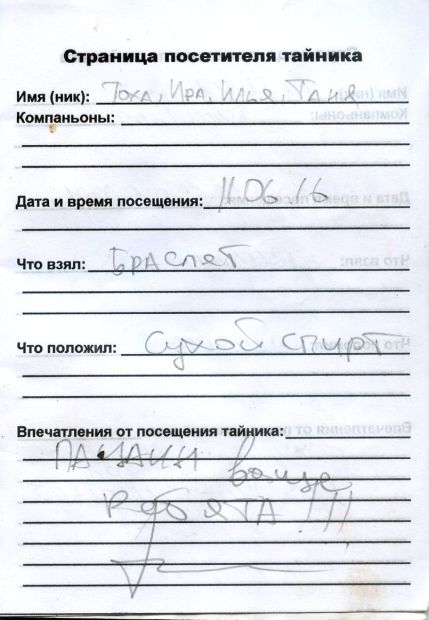 Страница посетителя тайника
Имя (ник): Тоха, Ира, Илья, Таня
Компаньоны:
Дата и время посещения: 11.06.16
Что взял: Браслет
Что положил: Сухой спирт
Впечатления от посещения тайника:
ПАЦАНЫ ваще
РЕБЯТА !!!